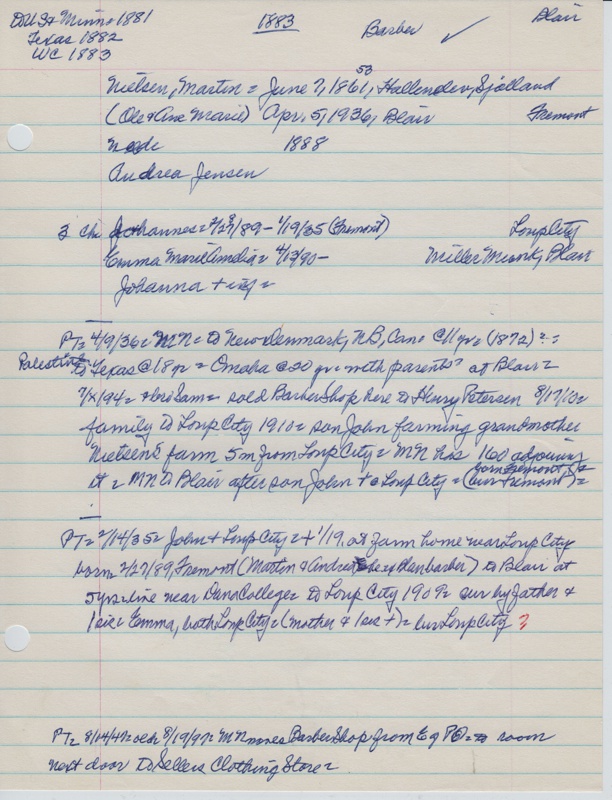 Minn = 1881 1883 Blair
Texas 1882 Barber ✓
WC 1883
53
Nielsen, Martin = June 7, 1861, Sjælland
(Ole & Ane Marie) Apr. 5, 1936, Blair Fremont
1888
Andrea Jensen
3 chi Johannes = 2/27/89 - 1/19/35 (Fremont) Loup City
Emma Marie = 4/13/90 - Miller Munk, Blair
Johanna + inf =
PT = 4/9/36 = MN = to New Denmark, NB, Can = @ 11 yr = (1872)? =
Palestine
to Texas @ 18 yr = Omaha @ 20 yr = with parents? at Blair =
= sold Barber Shop here to Henry Petersen 8/17/10 =
family to Loup City 1910 = son John farming grandmother
Nielsen's farm 5 m from Loup City = MN has 160 adjoining
(born Fremont)? =
it = MN to Blair after son John + @ Loup City = (bur Fremont) =
PT = 2/14/35 = John + Loup City = + 1/19, at farm home near Loup City
born 2/27/89, Fremont (Martin & Andrea barber) to Blair at
5 yr = live near Dana College = to Loup City 1909 = sur by father &
1 sis = Emma, both Loup City = (mother & 1 sis +) = bur Loup City ?
PT = 8/14/47 = 8/19/97 = MN moves Barber Shop from E of PO = to room
next door to Sellers Clothing Store =